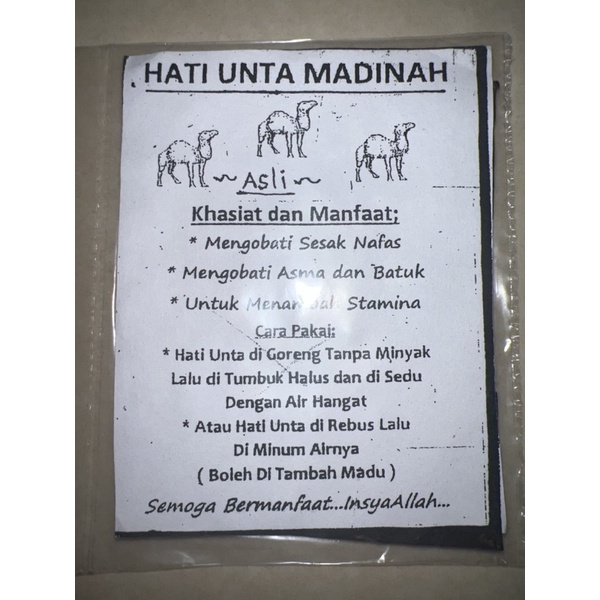 HATI UNTA MADINAH
~ Asli ~
Khasiat dan Manfaat;
* Mengobati Sesak Nafas
* Mengobati Asma dan Batuk
* Untuk Menambah Stamina
Cara Pakai:
* Hati Unta di Goreng Tanpa Minyak
Lalu di Tumbuk Halus dan di Sedu
Dengan Air Hangat
* Atau Hati Unta di Rebus Lalu
Di Minum Airnya
( Boleh Di Tambah Madu )
Semoga Bermanfaat...InsyaAllah...